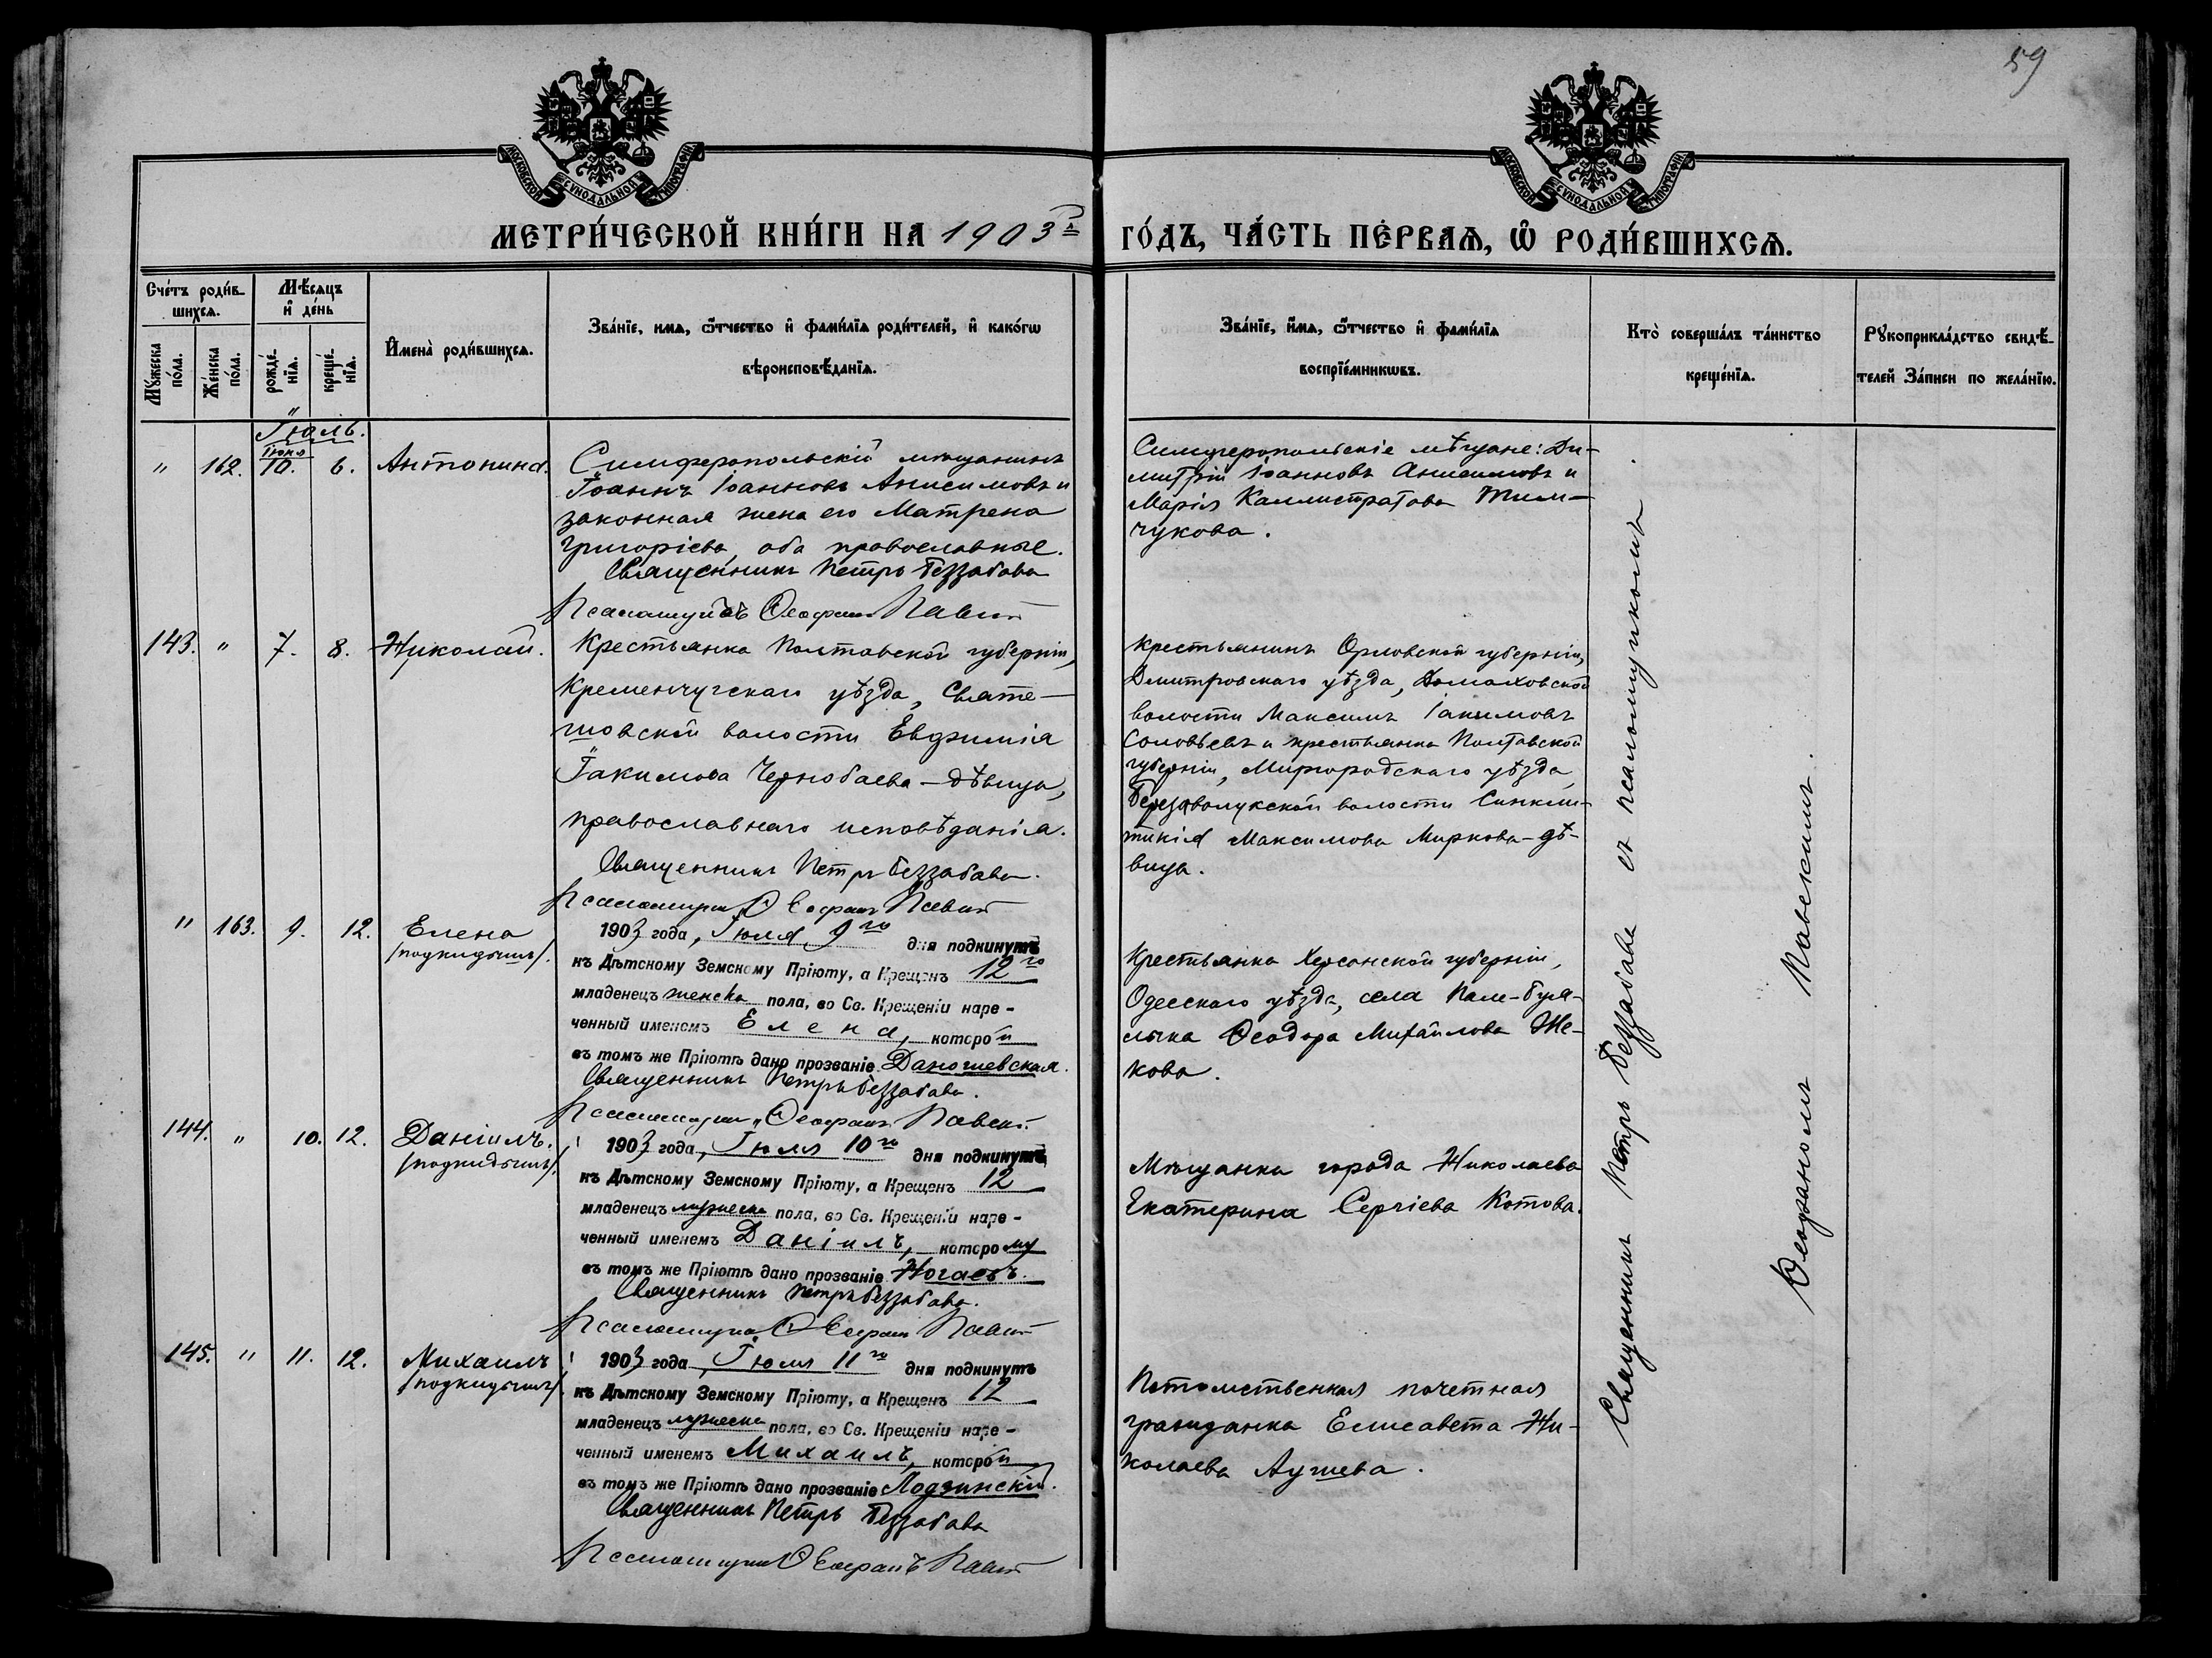 59
МОСКОВСКОЙ СѴНОДАЛЬНОЙ ТИПОГРАФІИ
МОСКОВСКОЙ СѴНОДАЛЬНОЙ ТИПОГРАФІИ
МЕТРИ́ЧЕСКОЙ КНИ́ГИ НА 1903й
ГО́ДЪ, ЧА́СТЬ ПЕ́РВАѦ, Ѽ РОДИ́ВШИХСѦ.
Сче́тъ роди́в-
шихсѧ.
Мꙋ́жеска по́ла.
Же́нска по́ла.
Мѣ́сѧцъ
и҆ де́нь
рожде́-
нїѧ.
креще́-
нїѧ.
И҆мена̀ роди́вшихсѧ.
Зва́нїе, имѧ, ѻ҆́тчество и҆ фами́лїѧ роди́телей, и҆ како́гѡ
вѣроисповѣ́данїѧ.
Зва́нїе, и҆́мѧ, ѻ҆́тчество и҆ фами́лїѧ
воспрїе́мникѡвъ.
Кто̀ соверша́лъ та́инство
креще́нїѧ.
Рꙋкоприкла́дство свидѣ́-
телей За́писи по жела́нїю.
Іюль.
" 162. Іюня 10. 6. Антонина.
Симферопольскій мѣщанинъ
Іоаннъ Іоанновъ Анисимовъ и
законная жена его Матрена
Григоріева, оба православные.
Священникъ Петръ Беззабава
Псаломщикъ Ѳеофанъ
Симферопольскіе мѣщане: Ди-
митрій Іоанновъ Анисимовъ и
Марія Каллистратова Тим-
чукова.
143. " 7. 8. Николай.
Крестьянка Полтавской губерніи,
Кременчугскаго уѣзда,
волости Евфимія
Іакимова Чернобаева – дѣвица,
православнаго исповѣданія.
Священникъ Петръ Беззабава.
Псаломщикъ Ѳеофанъ
Крестьянинъ Орловской губерніи,
Дмитровскаго уѣзда, Домаховской
волости Максимъ Іакимовъ
Соловьевъ и крестьянка Полтавской
губерніи, Миргородскаго уѣзда,
волости Синкли-
тикія Максимова Миркова – дѣ-
вица.
" 163. 9. 12. Елена
/подкидышъ/.
1903 года, Іюля 9го дня подкинутъ
къ Дѣтскому Земскому Пріюту, а Крещенъ 12го
младенецъ женска пола, во Св. Крещеніи наре-
ченный именемъ Елена, которой
въ томъ же Пріютѣ дано прозваніе Даношевская.
Священникъ Петръ Беззабава.
Псаломщикъ Ѳеофанъ
Крестьянка Херсонской губерніи,
Одесскаго уѣзда, села
Ѳеодора Михайлова Же-
кова.
144. " 10. 12. Даніилъ.
/подкидышъ/.
1903 года, Іюля 10го дня подкинутъ
къ Дѣтскому Земскому Пріюту, а Крещенъ 12
младенецъ мужеска пола, во Св. Крещеніи наре-
ченный именемъ Даніилъ, которому
въ томъ же Пріютѣ дано прозваніе Ногаевъ.
Священникъ Петръ Беззабава.
Псаломщикъ Ѳеофанъ
Мѣщанка города Николаева
Екатерина Сергіева Котова.
145. " 11. 12. Михаилъ
/подкидышъ/.
1903 года, Іюля 11го дня подкинутъ
къ Дѣтскому Земскому Пріюту, а Крещенъ 12
младенецъ мужеска пола, во Св. Крещеніи наре-
ченный именемъ Михаилъ, которой
въ томъ же Пріютѣ дано прозваніе Лодзинскій.
Священникъ Петръ Беззабава
Псаломщикъ Ѳеофанъ
Потомственная почетная
гражданка Елисавета Ни-
колаева Аушева.
Священникъ Петръ Беззабава съ псаломщикомъ
Ѳеофаномъ Павскимъ.